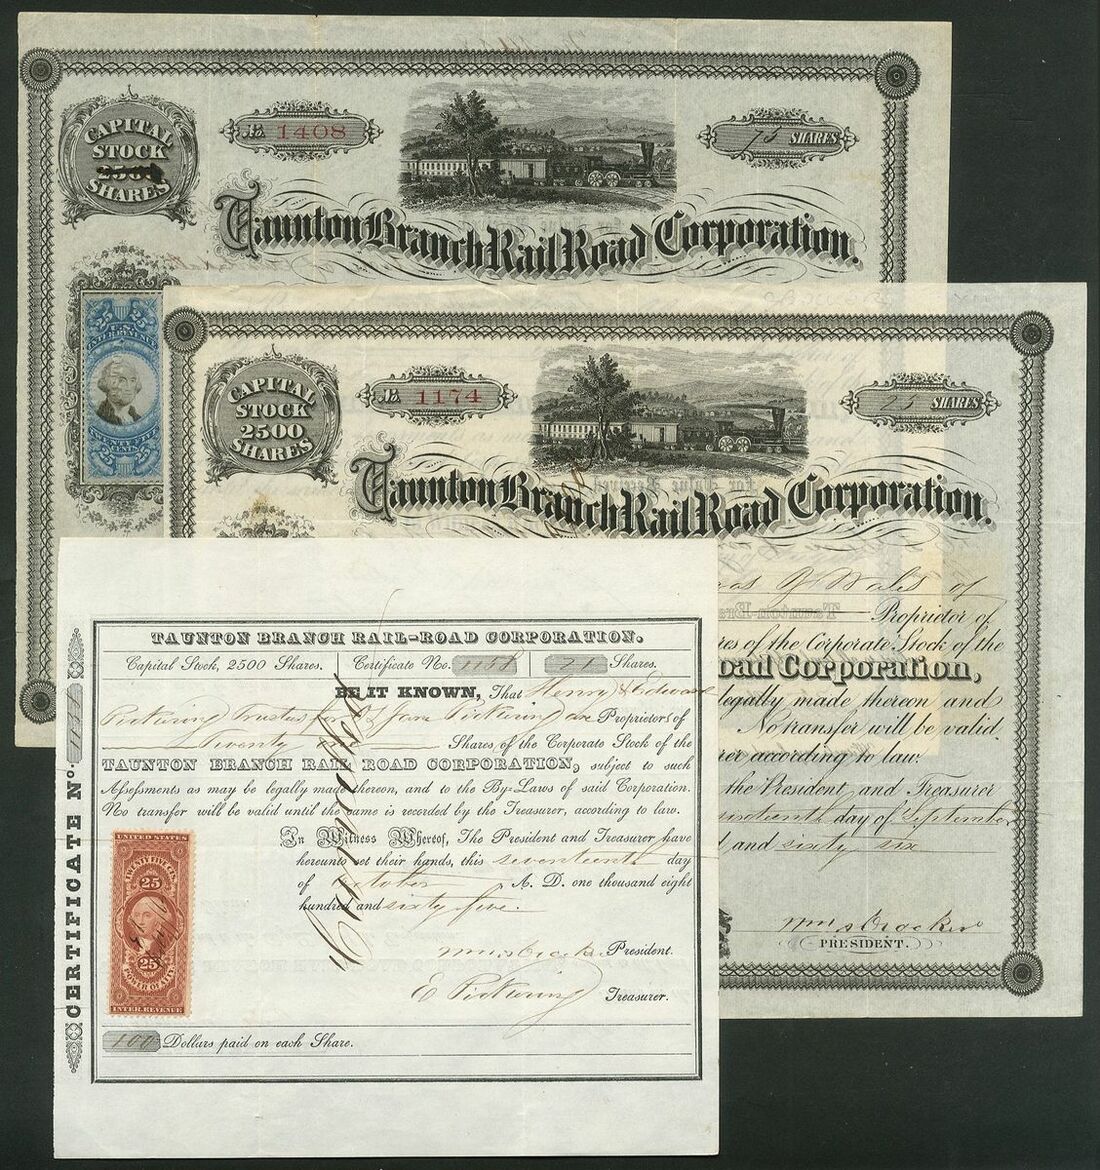 CAPITAL
STOCK
2500
SHARES
No. 1408
SHARES
Taunton Branch Rail Road Corporation.
U.S.
INTER. REVENUE
TWENTY FIVE
CENTS
25 25
CAPITAL
STOCK
2500
SHARES
No. 1174
25 SHARES
Taunton Branch Rail Road Corporation.
of
Proprietor of
of the Corporate Stock of the
oad Corporation,
legally made thereon and
No transfer will be valid
rer according to law.
the President, and Treasurer
day of September
and sixty six
Wm. S. Crocker
PRESIDENT.
TAUNTON BRANCH RAIL-ROAD CORPORATION.
Capital Stock, 2500 Shares. Certificate No. 1158 21 Shares.
BE IT KNOWN, That Henry & Edward
Pickering Trustees for Jane Pickering are Proprietors of
Twenty one Shares of the Corporate Stock of the
TAUNTON BRANCH RAIL ROAD CORPORATION, subject to such
Assessments as may be legally made thereon, and to the By-Laws of said Corporation.
No transfer will be valid until the same is recorded by the Treasurer, according to law.
In Witness Whereof, The President and Treasurer have
hereunto set their hands, this seventeenth day
of October A. D. one thousand eight
hundred and sixty five.
Wm. S. Crocker President.
E Pickering Treasurer.
100 Dollars paid on each Share.
CERTIFICATE No. 1158
Cancelled
UNITED STATES
TWENTY FIVE CTS.
25
25
POWER OF ATT'Y
INTER. REVENUE